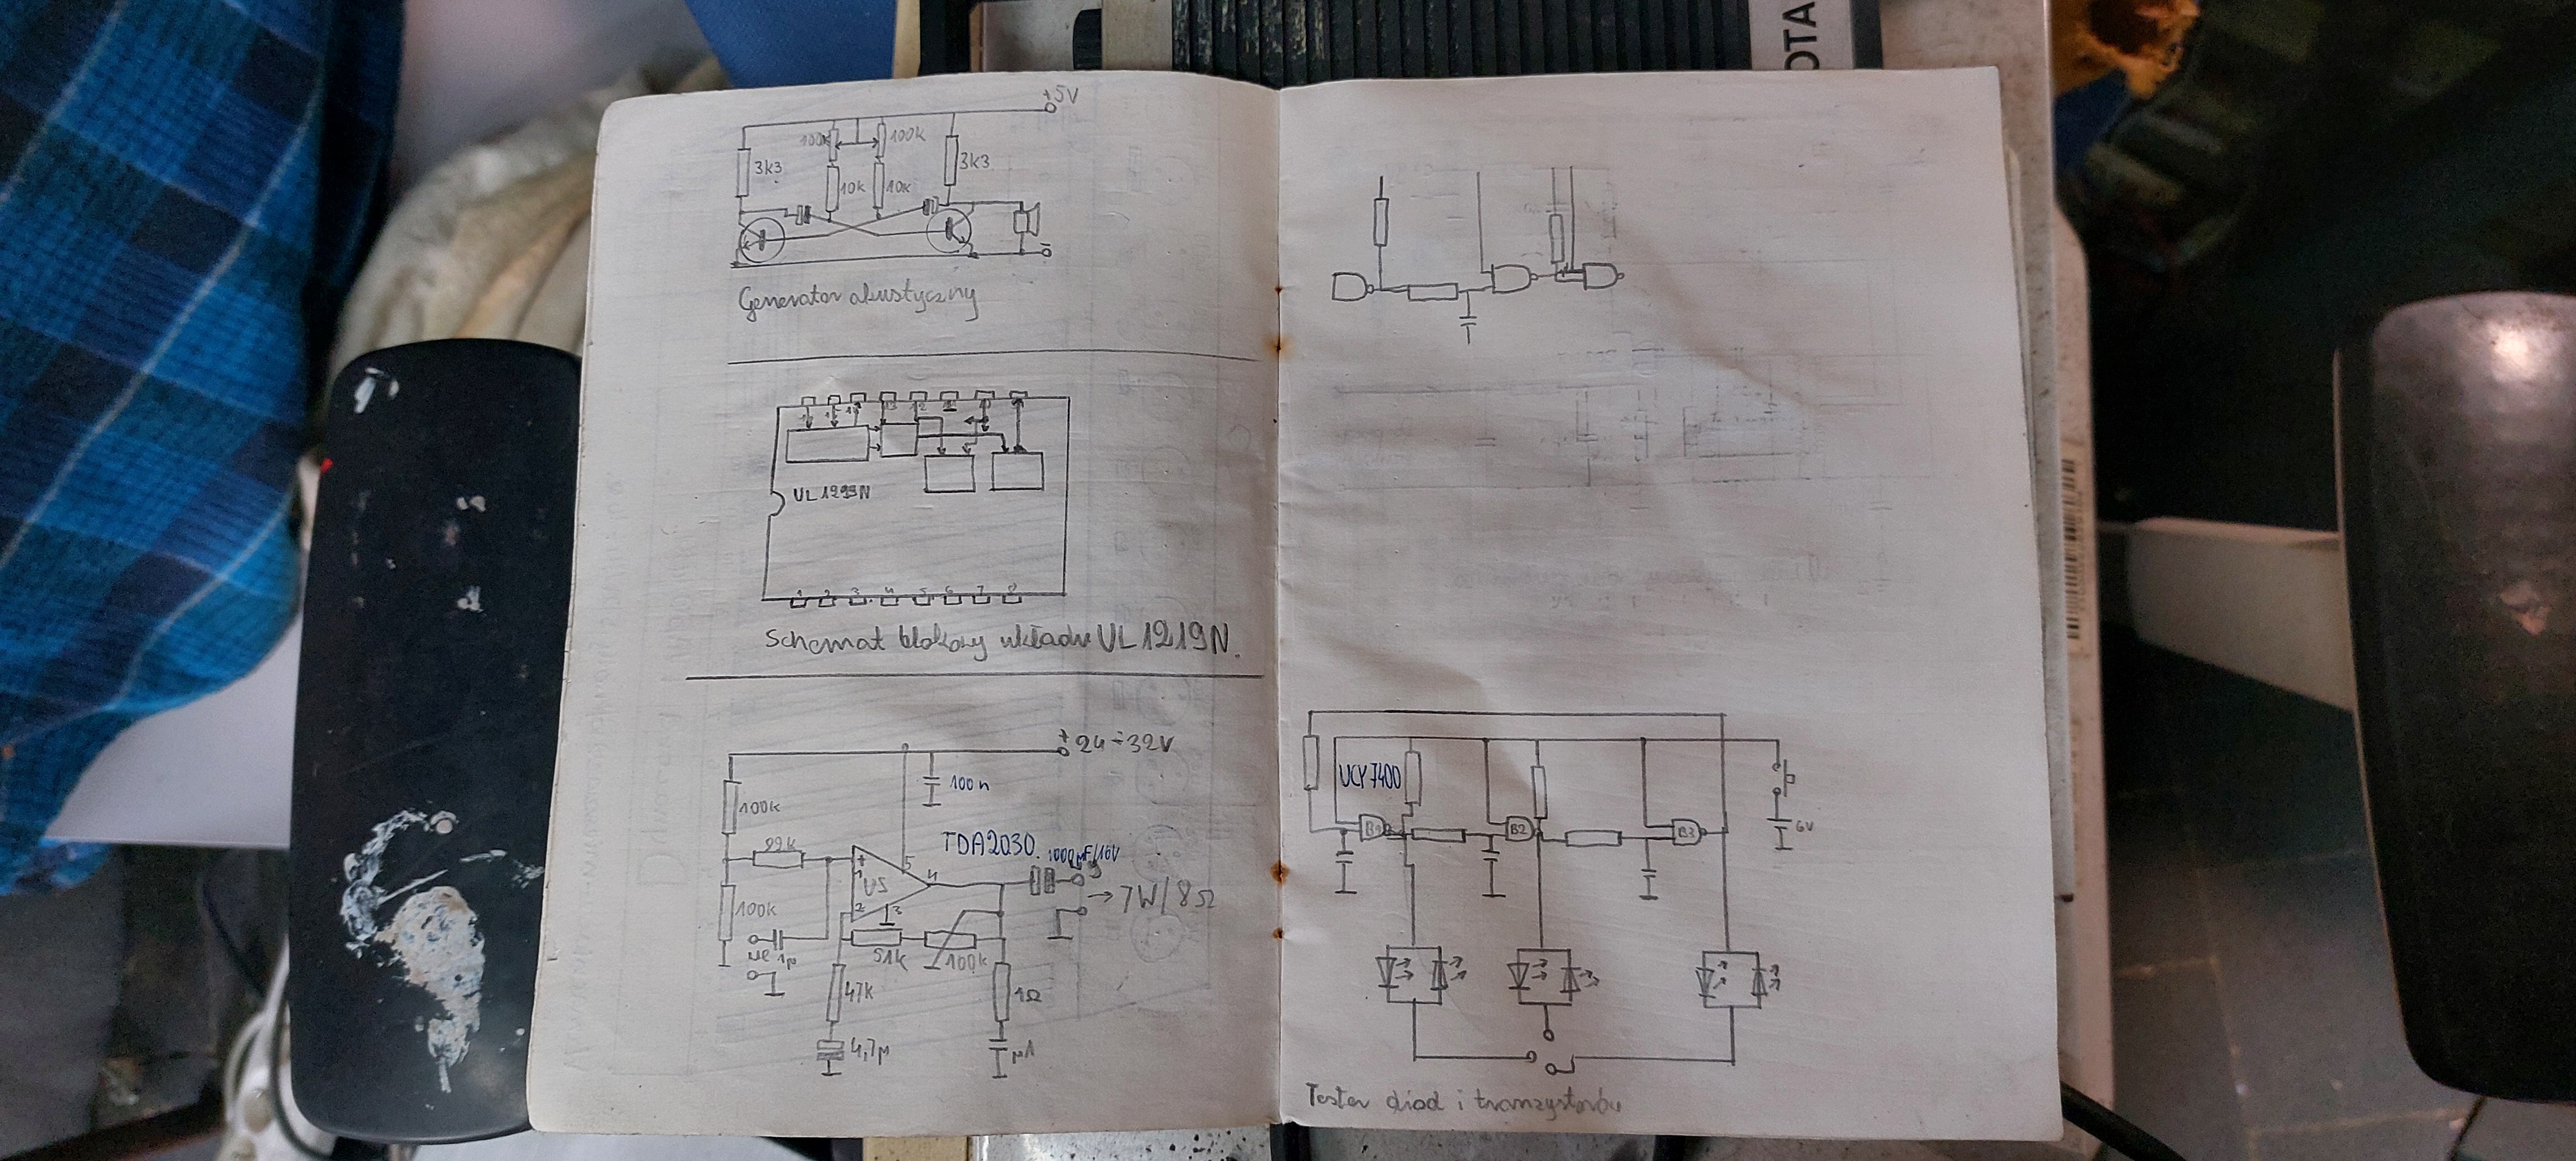 OTA
+5V
100k
100k
3k3
3k3
10k
10k
Generator akustyczny
UL1299N
1 2 3 4 5 6 7 8
Schemat blokowy układu UL1219N.
+24÷32V
100n
100k
TDA2030
1000µF/16V
+
5
4
1
2
3
→7W/8Ω
100k
51k
100k
we 1µ
47k
1Ω
4,7µ
µ1
UCY7400
B1
B2
B3
6V
Tester diod i tranzystorów